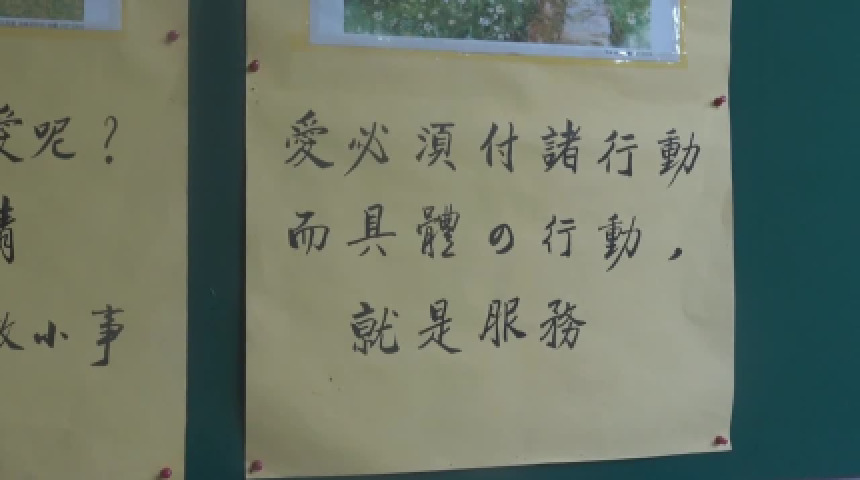 愛呢？
情
做小事
愛必須付諸行動
而具體の行動，
就是服務